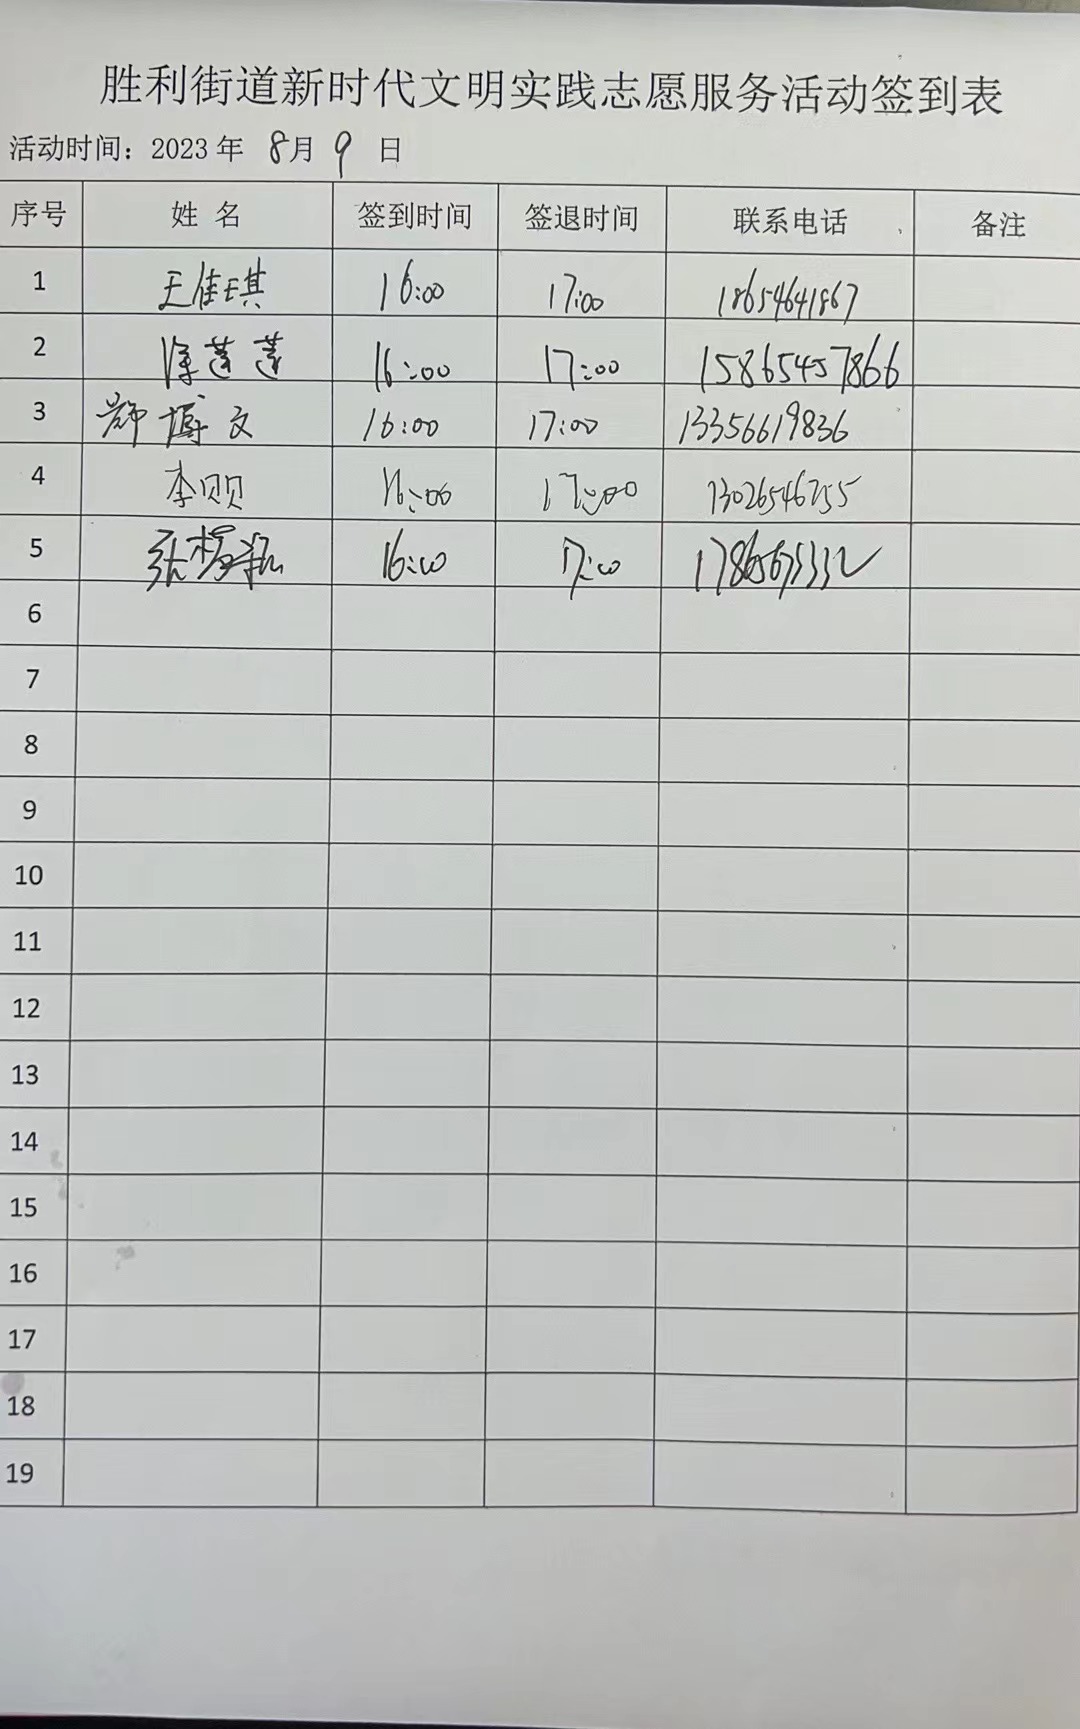 胜利街道新时代文明实践志愿服务活动签到表
活动时间：2023 年 8月 9 日
序号 姓 名 签到时间 签退时间 联系电话 备注
1 王佳琪 16:00 17:00 18654641867
2 莲莲 16:00 17:00 15865457866
3 博文 16:00 17:00 13356619836
4 李贝贝 16:00 17:00 13026546755
5 张 16:00 17:00
6
7
8
9
10
11
12
13
14
15
16
17
18
19